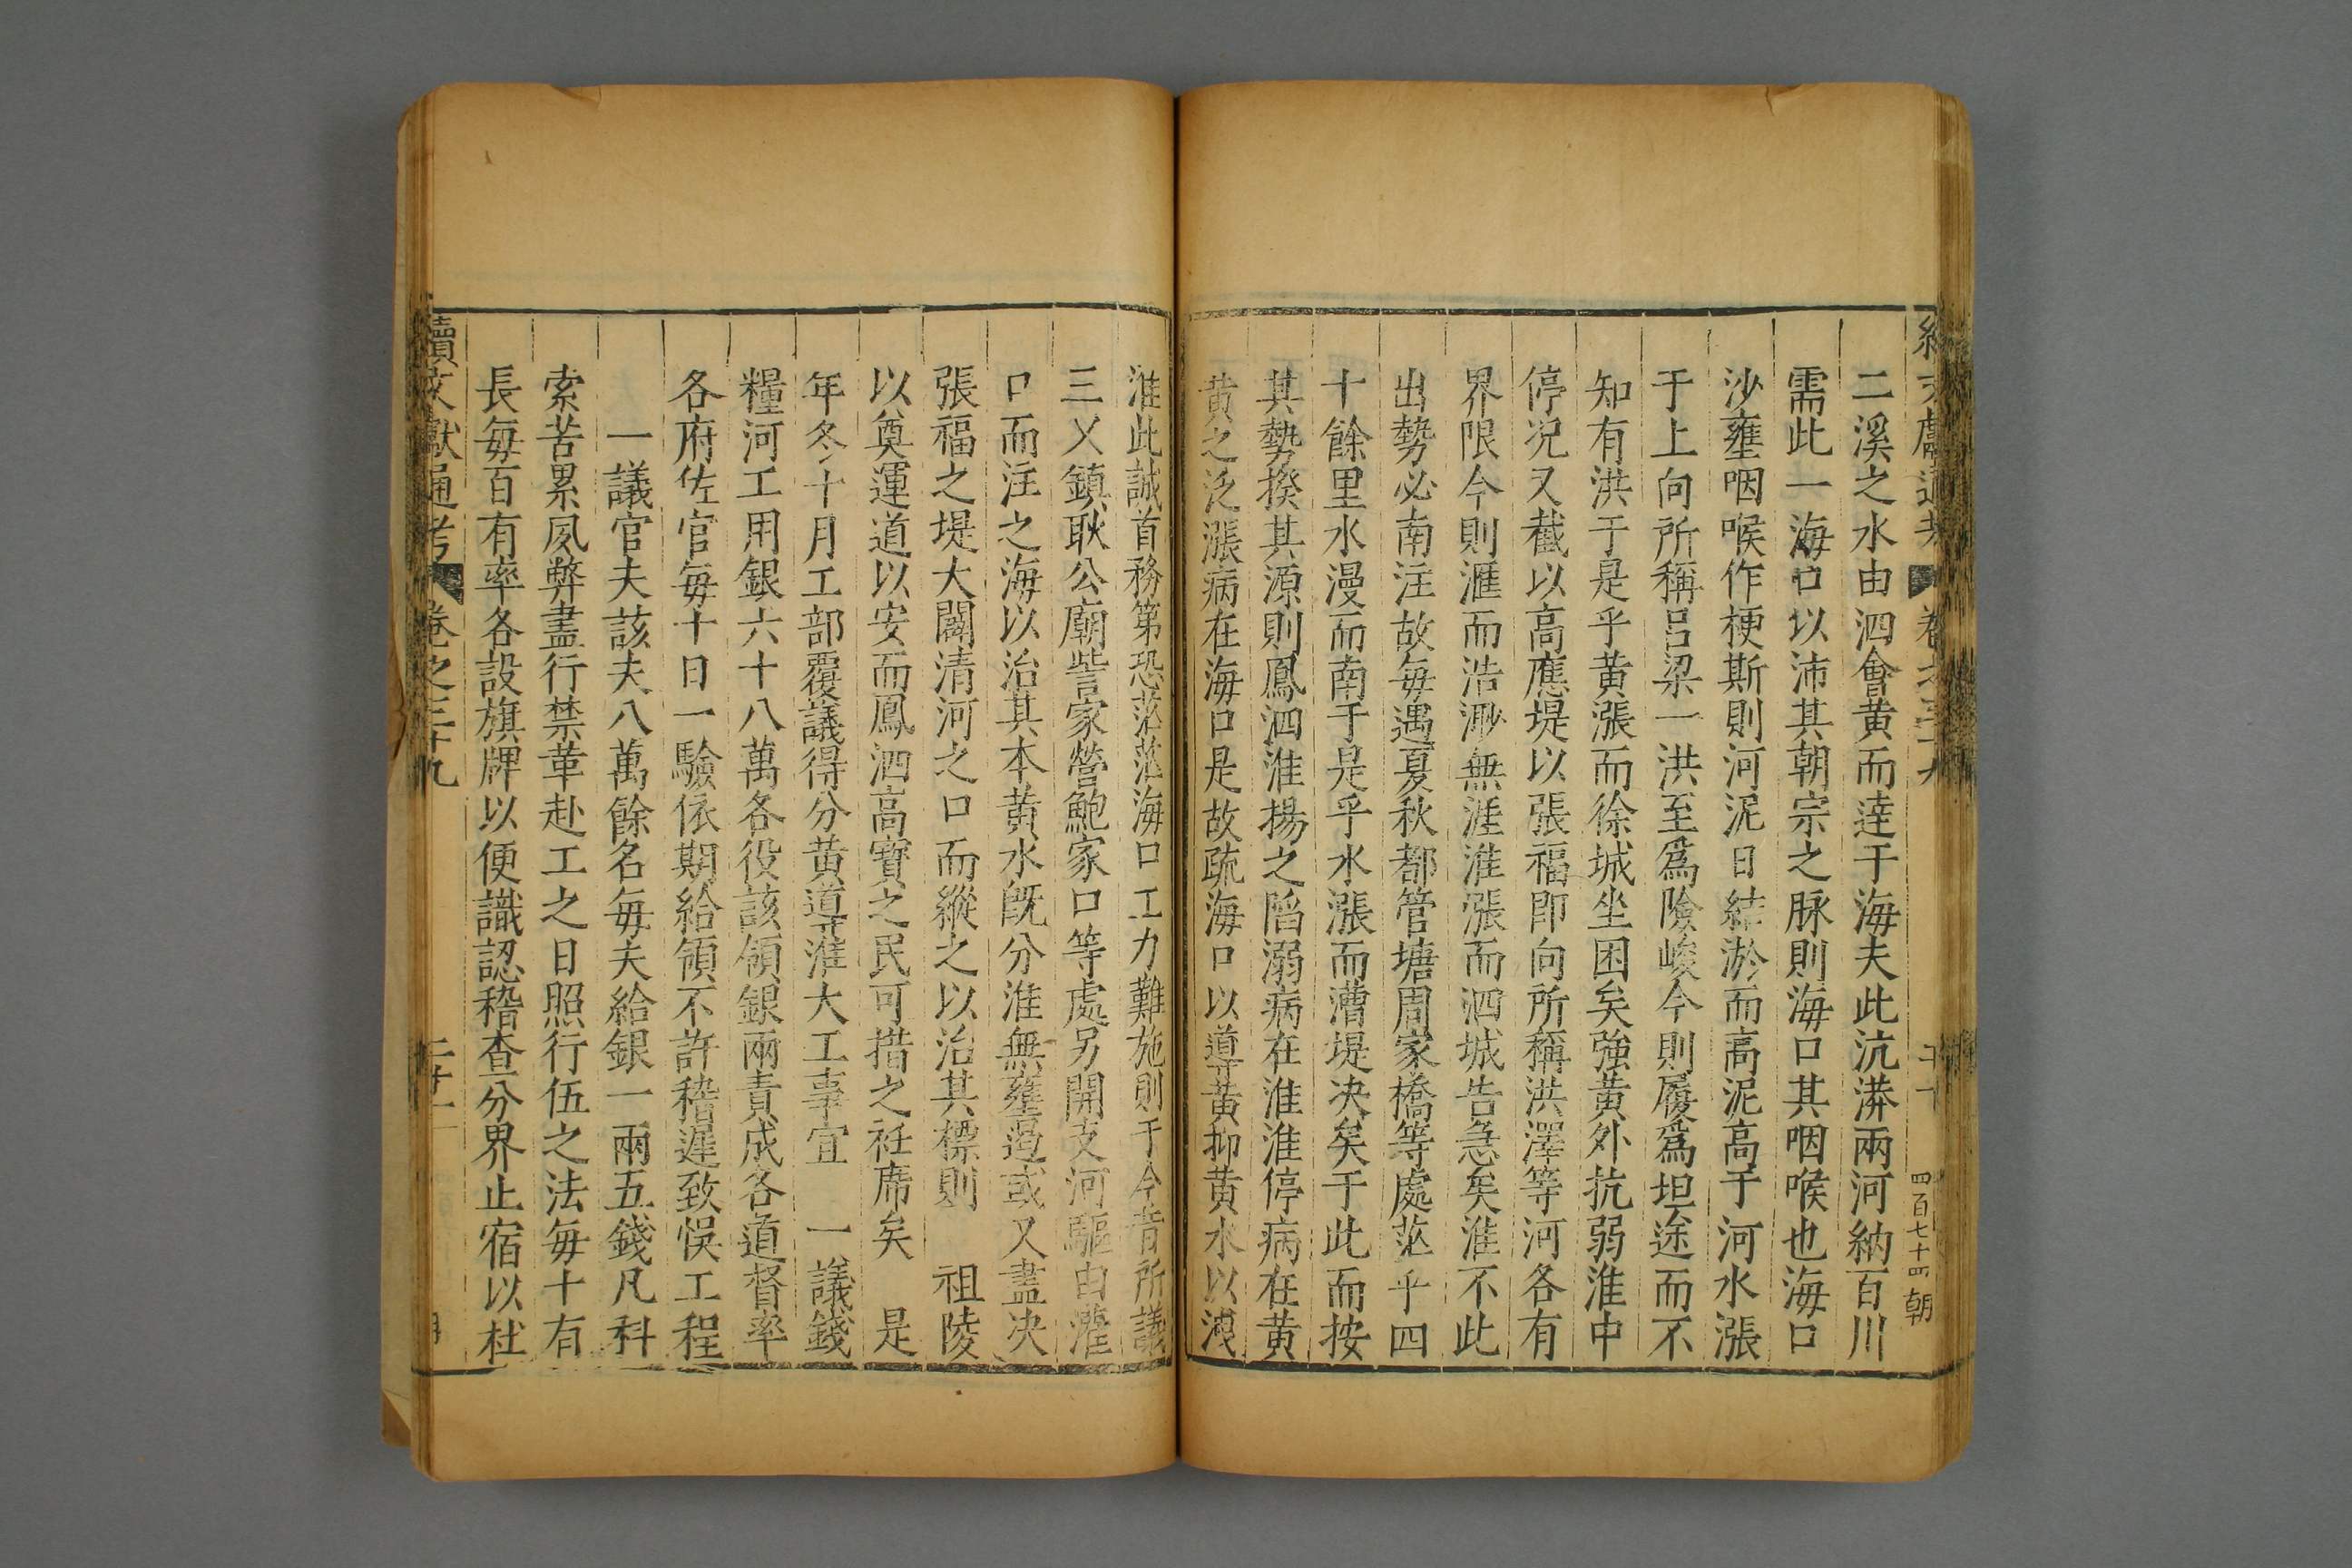 二溪之水由泗會黄而逹于海夫此沆漭兩河納百川
需此一海口以沛其朝宗之脉則海口其咽喉也海口
沙壅咽喉作梗斯則河泥日結淤而高泥高于河水漲
于上向所稱吕梁一洪至爲險峻今則履爲坦途而不
知有洪于是乎黄漲而徐城坐困矣強黄外抗弱淮中
停况又截以高應堤以張福即向所稱洪澤等河各有
界限今則滙而浩渺無涯淮漲而泗城告急矣淮不此
出勢必南注故毎遇夏秋都管塘周家橋等處茫乎四
十餘里水漫而南于是乎水漲而漕堤决矣于此而按
其勢揆其源則鳳泗淮揚之陷溺病在淮淮停病在黄
黄之泛漲病在海口是故疏海口以導黄抑黄水以
淮此誠首務第恐茫茫海口工力難施則于今昔所議
三乂鎮耿公廟訾家營鮑家口等處另開支河驅由灌
口而注之海以治其本黄水旣分淮無壅遏或又盡决
張福之堤大闢清河之口而縱之以治其標則　祖陵
以奠運道以安而鳳泗高寶之民可措之袵席矣　是
年冬十月工部覆議得分黄導淮大工事宜　一議錢
糧河工用銀六十八萬各役該領銀兩責成各道督率
各府佐官毎十日一驗依期給領不許稽遲致悞工程
一議官夫該夫八萬餘名毎夫給銀一兩五錢凡科
索苦累夙弊盡行禁革赴工之日照行伍之法毎十有
長毎百有率各設旗牌以便識認稽查分界止宿以杜
續文獻通考　卷之三十九　二十一
四百七十四　朝